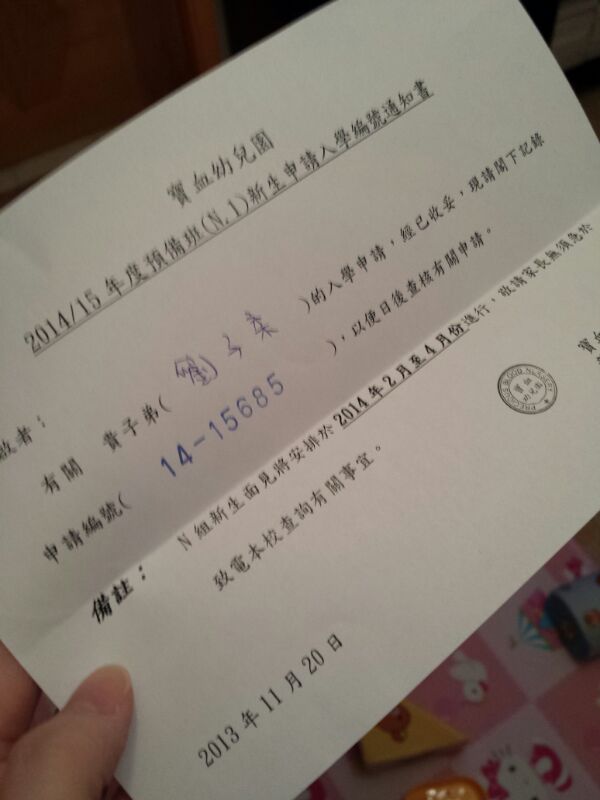 寶血幼兒園
2014/15 年度預備班(N.1)新生申請入學編號通知書
啟者：
有關 貴子弟( 劉子柔 )的入學申請，經已收妥，現請閣下記錄
申請編號( 14-15685 )，以便日後查核有關申請。
備註： N 組新生面見將安排於 2014 年 2 月至 4 月份進行，敬請家長無須急於
致電本校查詢有關事宜。
寶血
PRECIOUS BLOOD NURSERY
寶血
幼兒園
2013 年 11 月 20 日